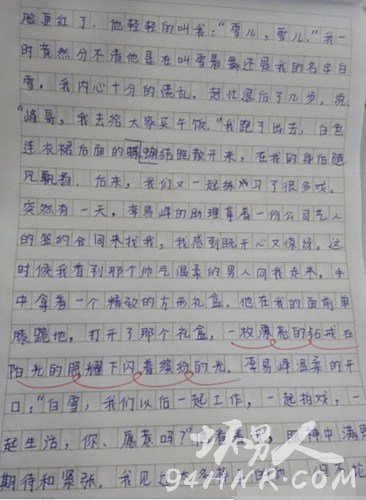 脸更红了，他轻轻的叫我："雪儿，雪儿。"我一
时竟然分不清他是在叫雪舞还是我的名字白
雪，我内心十分的慌乱。赶忙退后了几步，说
"峰哥，我去给大家买午饭。"我跑了出去，白色
连衣裙后面的蝴蝶结飘散开来，在我的身后随
风飘。后来，我们又一起练习了很多戏。
突然有一天，李易峰的助理拿着一份公司艺人
的签约合同来找我，我感到既开心又惊讶。这
时候我看到那个帅气温柔的男人向我走来，手
中拿着一个精致的方形礼盒。他在我的面前单
膝跪地，打开了那个礼盒，一枚漂亮的钻戒在
阳光的照耀下闪着缤纷的光。李易峰温柔的开
口："白雪，我们以后一起工作，一起拍戏，一
起生活，你，愿意吗？"他看着我，眼神中满
期待和紧张。我
坏男人
94HNR.COM